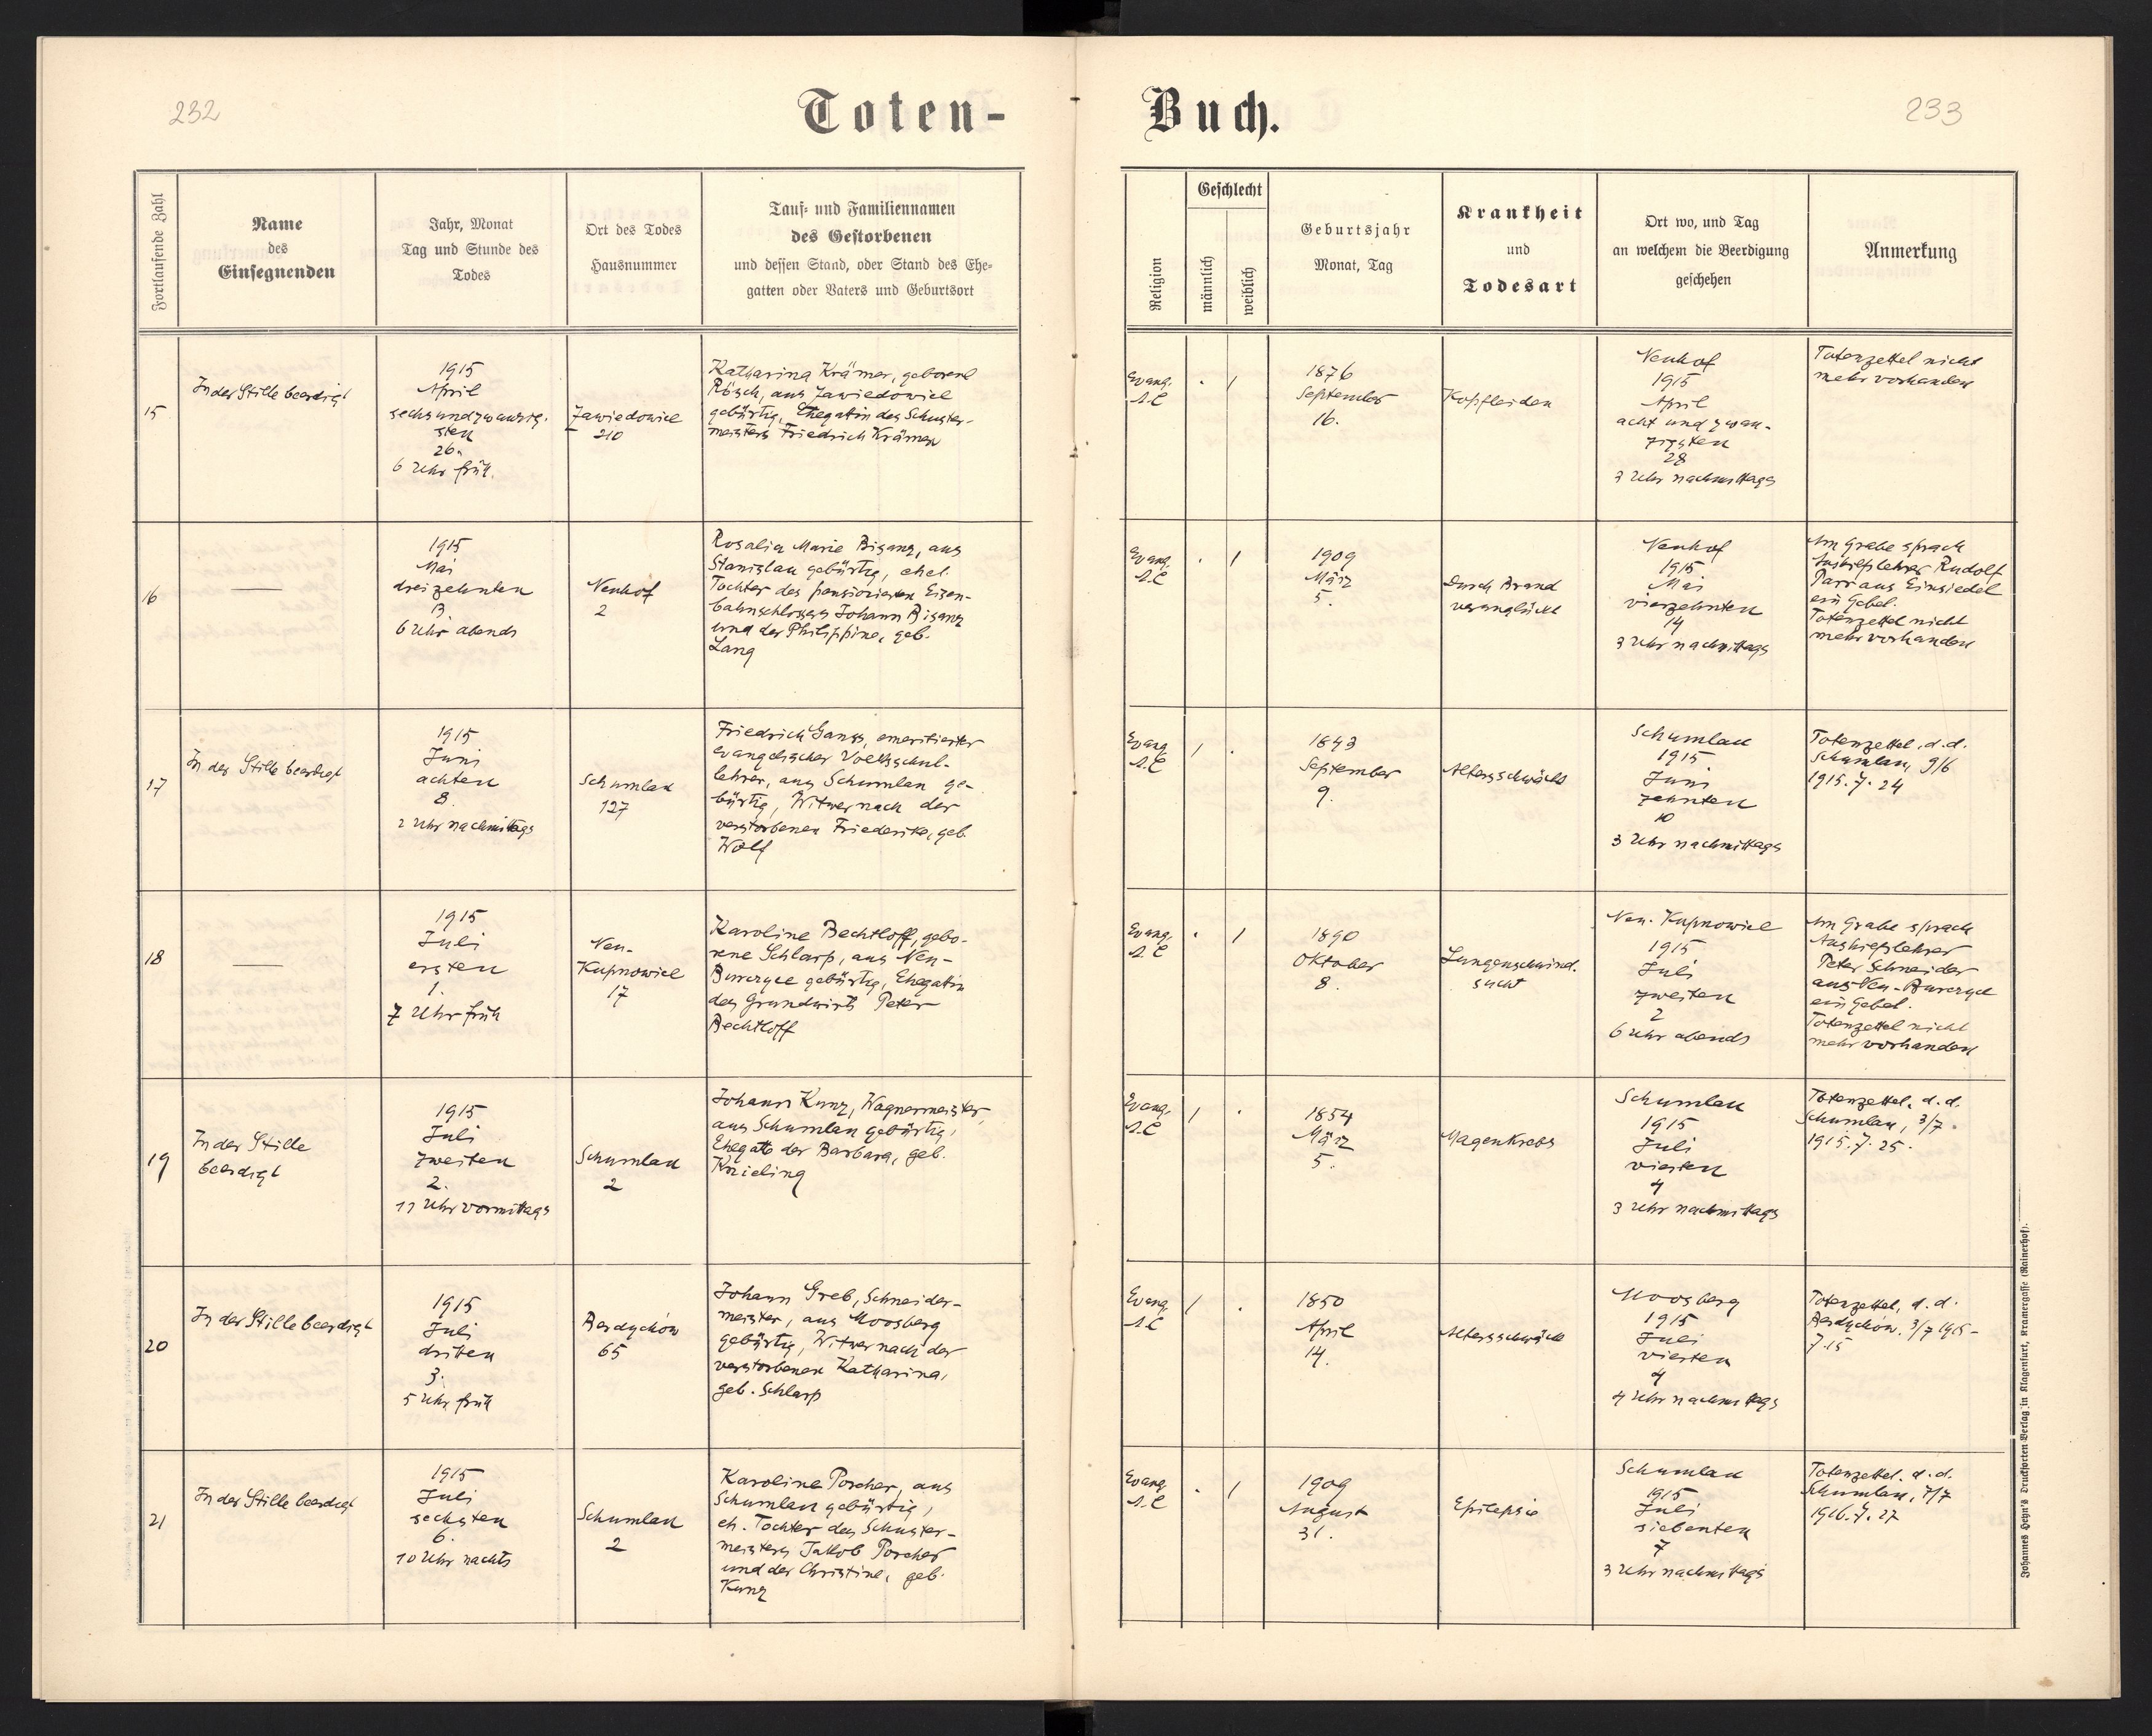 232
Toten-
Buch.
233
Fortlaufende Zahl
Name
des
Einsegnenden
Jahr, Monat
Tag und Stunde des
Todes
Ort des Todes
Hausnummer
Tauf- und Familiennamen
des Gestorbenen
und dessen Stand, oder Stand des Ehe-
gatten oder Vaters und Geburtsort
Religion
Geschlecht
männlich
weiblich
Geburtsjahr
Monat, Tag
Krankheit
und
Todesart
Ort wo, und Tag
an welchem die Beerdigung
geschehen
Anmerkung
15
In der Stille beerdigt
1915
April
sechsundzwanzig-
sten
26.
6 Uhr früh.
Zawiedowice
210
Katharina Krämer, geborene
Rösch, aus Zawiedowice
gebürtig, Ehegatin des Schuster-
meisters Friedrich Krämer
Evang.
A.C
. /
1876
September
16.
Kopfleiden
Neuhof
1915
April
acht und zwan-
zigsten
28
3 Uhr nachmittags
Totenzettel nicht
mehr vorhanden
16
—
1915
Mai
dreizehnten
13.
6 Uhr abends
Neuhof
2
Rosalia Marie Bisanz, aus
Stanislau gebürtig, ehel.
Tochter des pensionierten Eisen-
bahnschlossers Johann Bisanz
und der Philippine, geb.
Lang
Evang.
A.C
. /
1909
März
5.
Durch Brand
verunglückt
Neuhof
1915
Mai
vierzehnten
14
3 Uhr nachmittags
Am Grabe sprach
Aushilfslehrer Rudolf
Parr aus Einsiedel
ein Gebet.
Totenzettel nicht
mehr vorhanden
17
In der Stille beerdigt
1915
Juni
achten
8.
2 Uhr nachmittags
Schumlau
127
Friedrich Ganss, emeritierter
evangelischer Volksschul-
lehrer, aus Schumlau ge-
bürtig, Witwer nach der
verstorbenen Friederike, geb.
Wolf
Evang
A.C
/ .
1843
September
9.
Altersschwäche
Schumlau
1915
Juni
zehnten
10
3 Uhr nachmittags
Totenzettel, d.d.
Schumlau, 9/6
1915. 7. 24
18
—
1915
Juli
ersten
1.
7 Uhr früh
Neu-
Kupnowice
17
Karoline Bechtloff, gebo-
rene Schlarp, aus Neu-
Burczyce gebürtig, Ehegatin
des Grundwirts Peter
Bechtloff
Evang.
A.C
. /
1890
Oktober
8.
Lungenschwind-
sucht
Neu-Kupnowice
1915
Juli
zweiten
2
6 Uhr abends
Am Grabe sprach
Aushilfslehrer
Peter Schneider
aus Neu-Burczyce
ein Gebet.
Totenzettel nicht
mehr vorhanden
19
In der Stille
beerdigt
1915
Juli
zweiten
2.
11 Uhr vormittags
Schumlau
2
Johann Kunz, Wagnermeister,
aus Schumlau gebürtig,
Ehegatte der Barbara, geb.
Knieling
Evang.
A.C
/ .
1854
März
5.
Magenkrebs
Schumlau
1915
Juli
vierten
4
3 Uhr nachmittags
Totenzettel, d.d.
Schumlau, 3/7.
1915. 7. 25.
20
In der Stille beerdigt
1915
Juli
dritten
3.
5 Uhr früh
Berdychów
65
Johann Greb, Schneider-
meister, aus Moosberg
gebürtig, Witwer nach der
verstorbenen Katharina,
geb. Schlarp
Evang.
A.C
/ .
1850
April
14.
Altersschwäche
Moosberg
1915
Juli
vierten
4
4 Uhr nachmittags
Totenzettel, d.d.
Berdychów, 3/7 1915-
7.15
21
In der Stille beerdigt
1915
Juli
sechsten
6.
10 Uhr nachts
Schumlau
2
Karoline Porcher, aus
Schumlau gebürtig,
eh. Tochter des Schuster-
meisters Jakob Porcher
und der Christine, geb.
Kunz
Evang
A.C
. /
1909
August
31.
Epilepsie
Schumlau
1915
Juli
siebenten
7
3 Uhr nachmittags
Totenzettel, d.d.
Schumlau, 7/7
1916. 7. 27
Johannes Heyn's Drucksorten Verlag in Klagenfurt, Kramergasse (Rainerhof).